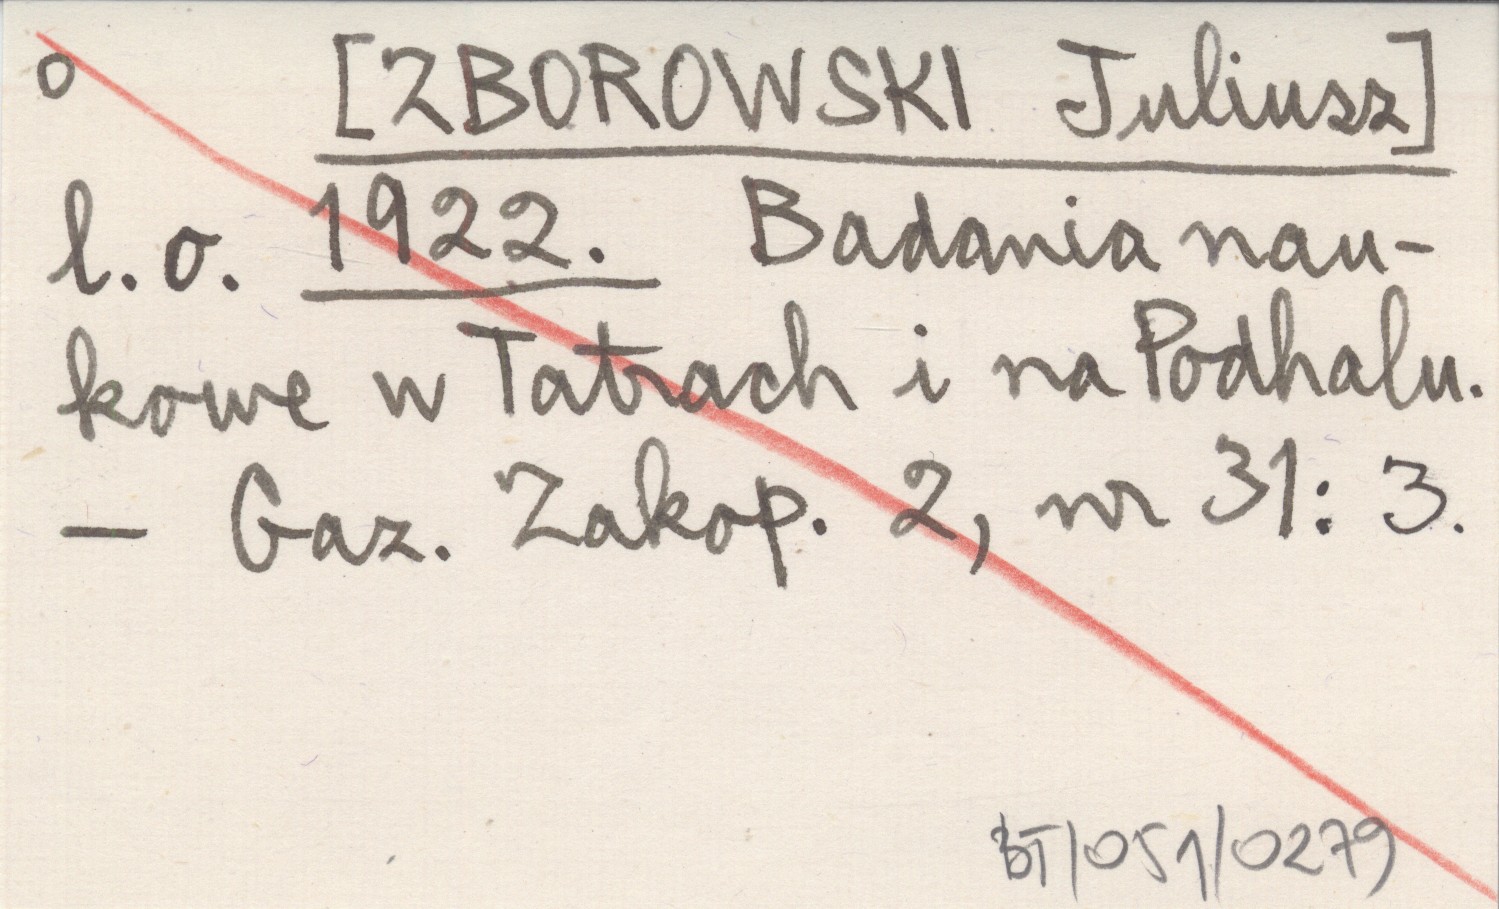 o [ZBOROWSKI Juliusz]
l.o. 1922. Badania nau-
kowe w Tatrach i na Podhalu.
— Gaz. Zakop. 2, nr 31: 3.
BT/051/0279